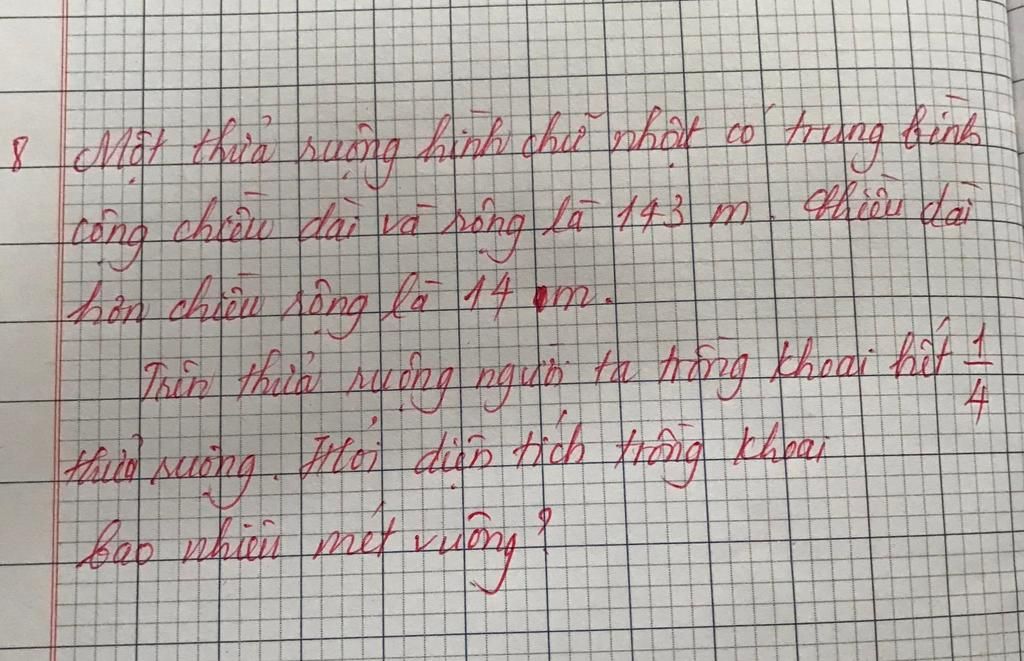 8 Một thửa ruộng hình chữ nhật có trung bình
cộng chiều dài và rộng là 143 m. Chiều dài
hơn chiều rộng là 14 m.
Trên thửa ruộng người ta trồng khoai hết 1/4
thửa ruộng. Hỏi diện tích trồng khoai
bao nhiêu mét vuông?